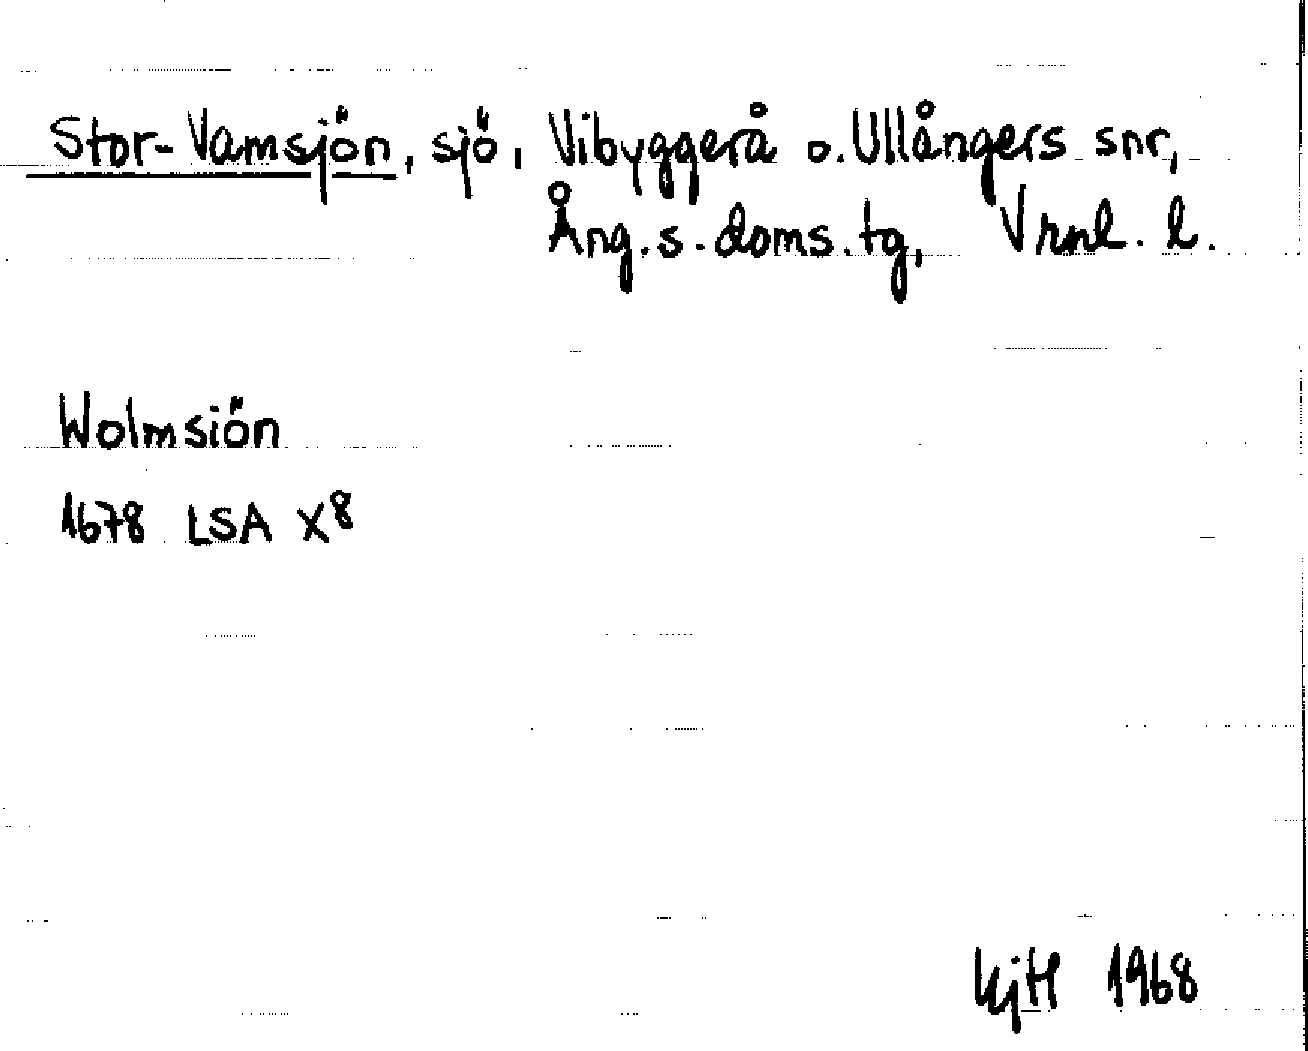 Stor-Vamsjön, sjö, Vibyggerå o. Ullångers snr,
Ång. s. doms. tg, Vrnl. l.
Wolmsiön
1678 LSA X8
KjH 1968